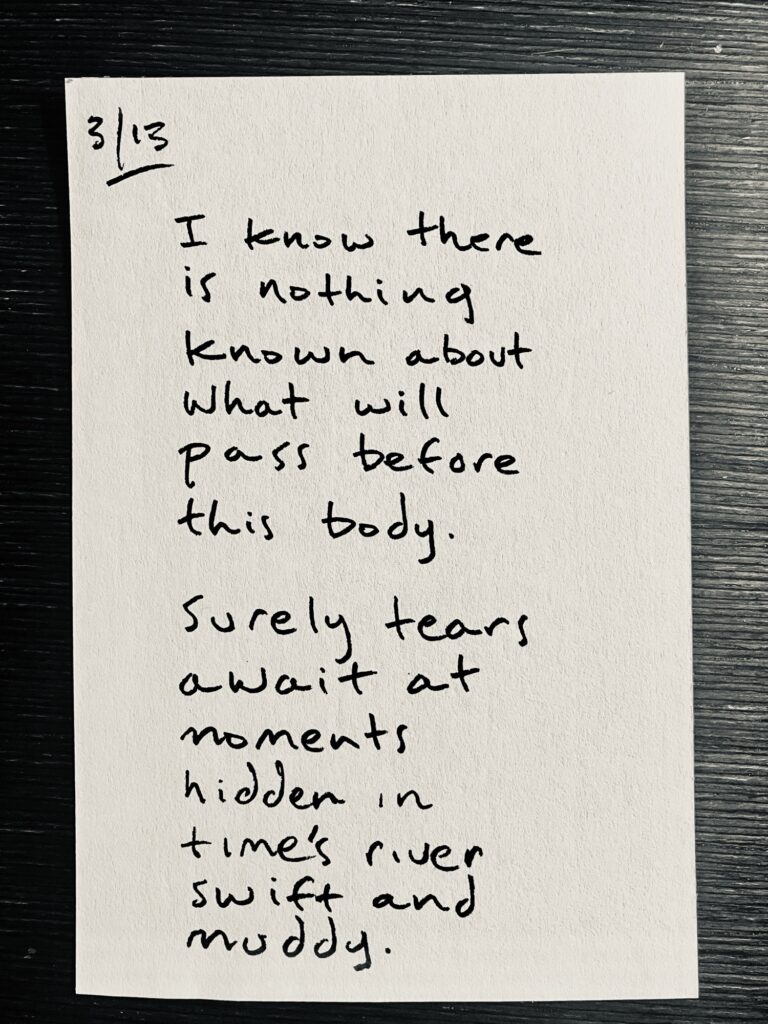 3/13
I know there
is nothing
known about
what will
pass before
this body.
Surely tears
await at
moments
hidden in
time's river
swift and
muddy.